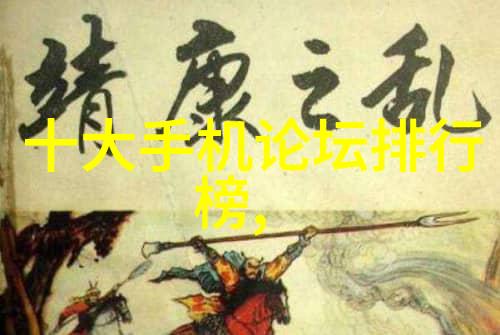 靖康之乱
十大手机论坛排行
榜,